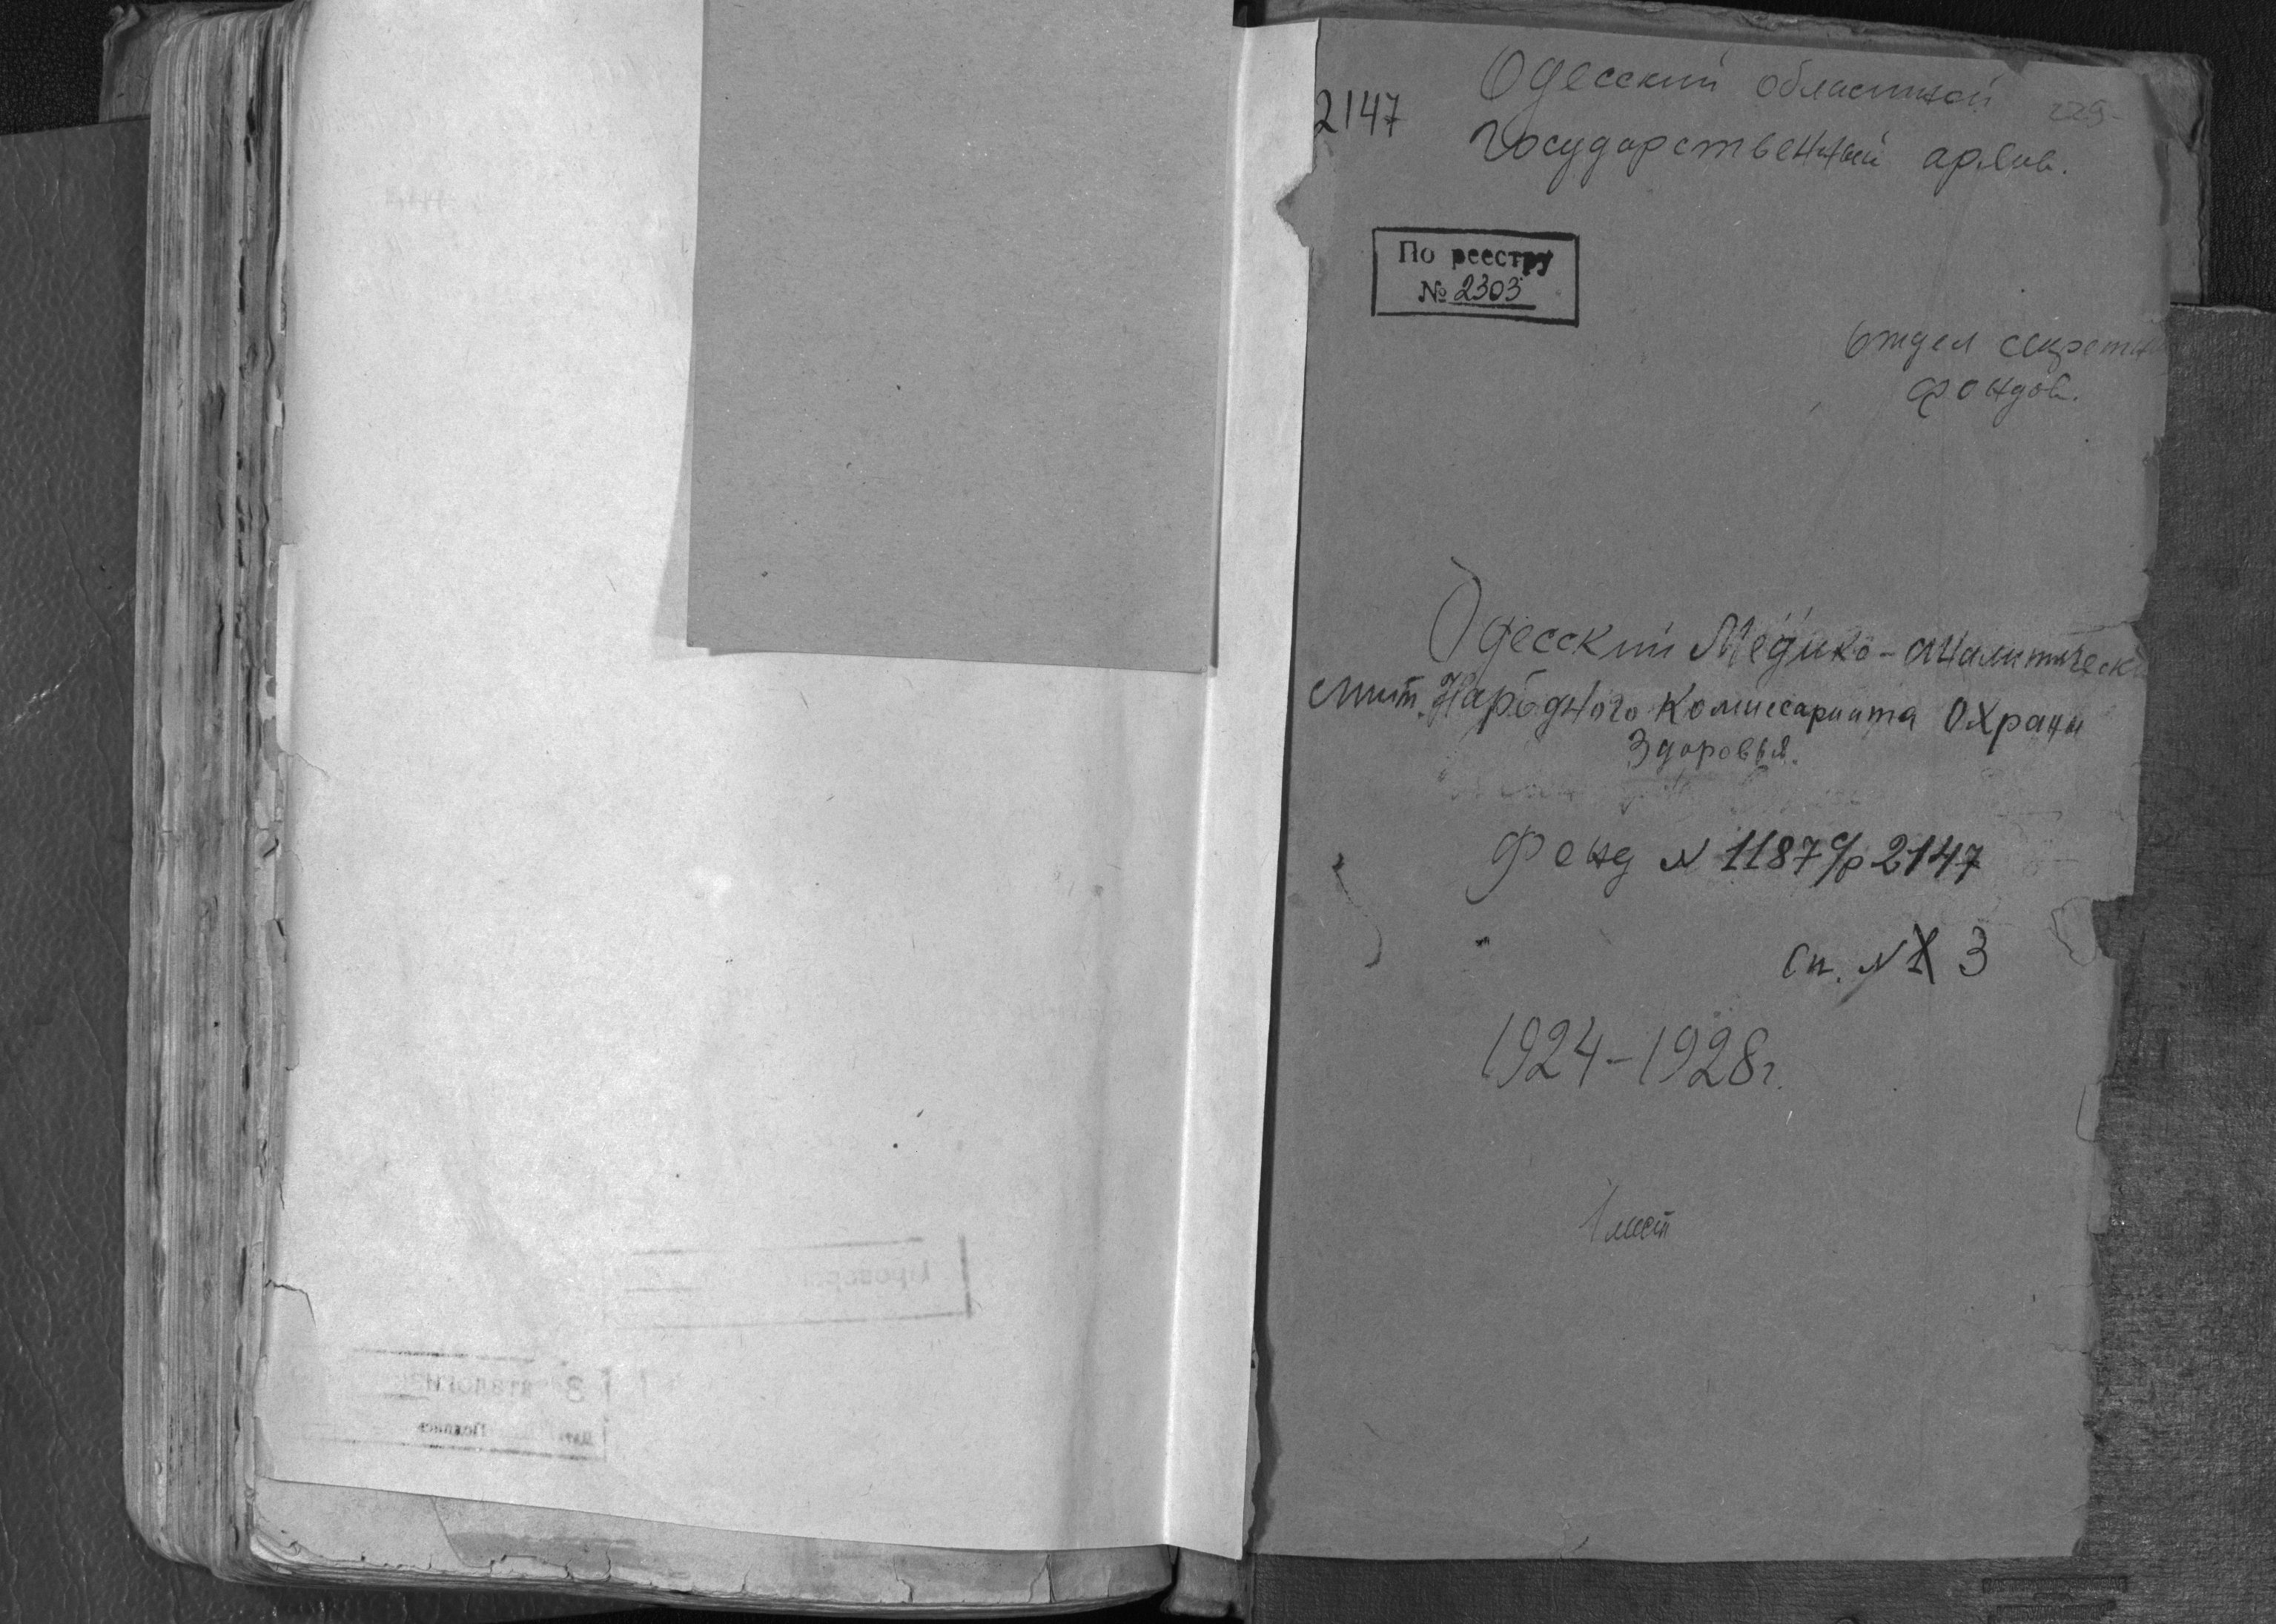 2147
Одесский областной
229
Государственный архив.
По реестру
№ 2303
Отдел секретн
фондов.
Одесский Медико-аналитическ
инт. Народного Комиссариата Охраны
Здоровья.
Фонд N 1187 с/р 2147
Оп. N 1 3
1924-1928г.
1 лист
Провере
Подпись